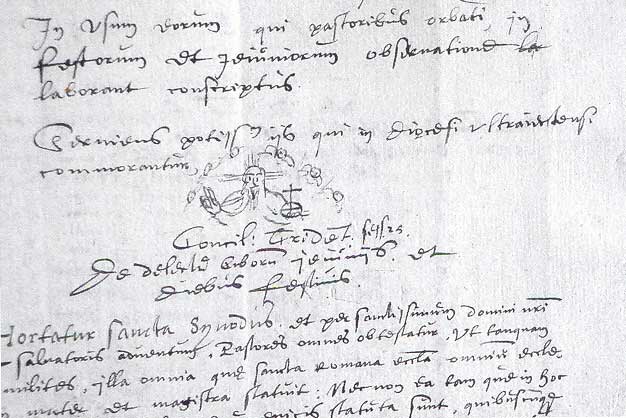 In usum eorum qui pastoribus orbati, in
festorum et ieiuniorum observatione
laborant conscriptus.
Serviens potiss iis qui in diocesi ultraiectensi
commorantur,
Concil. Trident. sess 25.
De delectu ciborum ieiuniis. et
diebus festivis.
Hortatur sancta synodus. et per sanctissimum domini nri
salvatoris adventum, Pastores omnes obtestatur, ut tanquam
milites, illa omnia que sancta Romana eccla omnium eccle
mater et magistra statuit. Nec non ea tam que in hoc
statuta sunt, quibuscunque